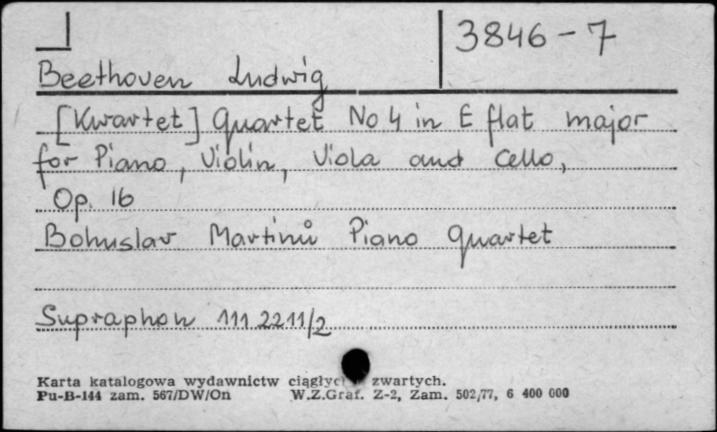 3846-7
Beethoven Ludwig
[Kwartet] Quartet No 4 in E flat major
for Piano, Violin, Viola and Cello,
Op. 16
Bohuslav Martinů Piano Quartet
Supraphon 111 2211/2
Karta katalogowa wydawnictw ciągłyc zwartych.
Pu-B-144 zam. 567/DW/On W.Z.Graf. Z-2, Zam. 502/77, 6 400 000